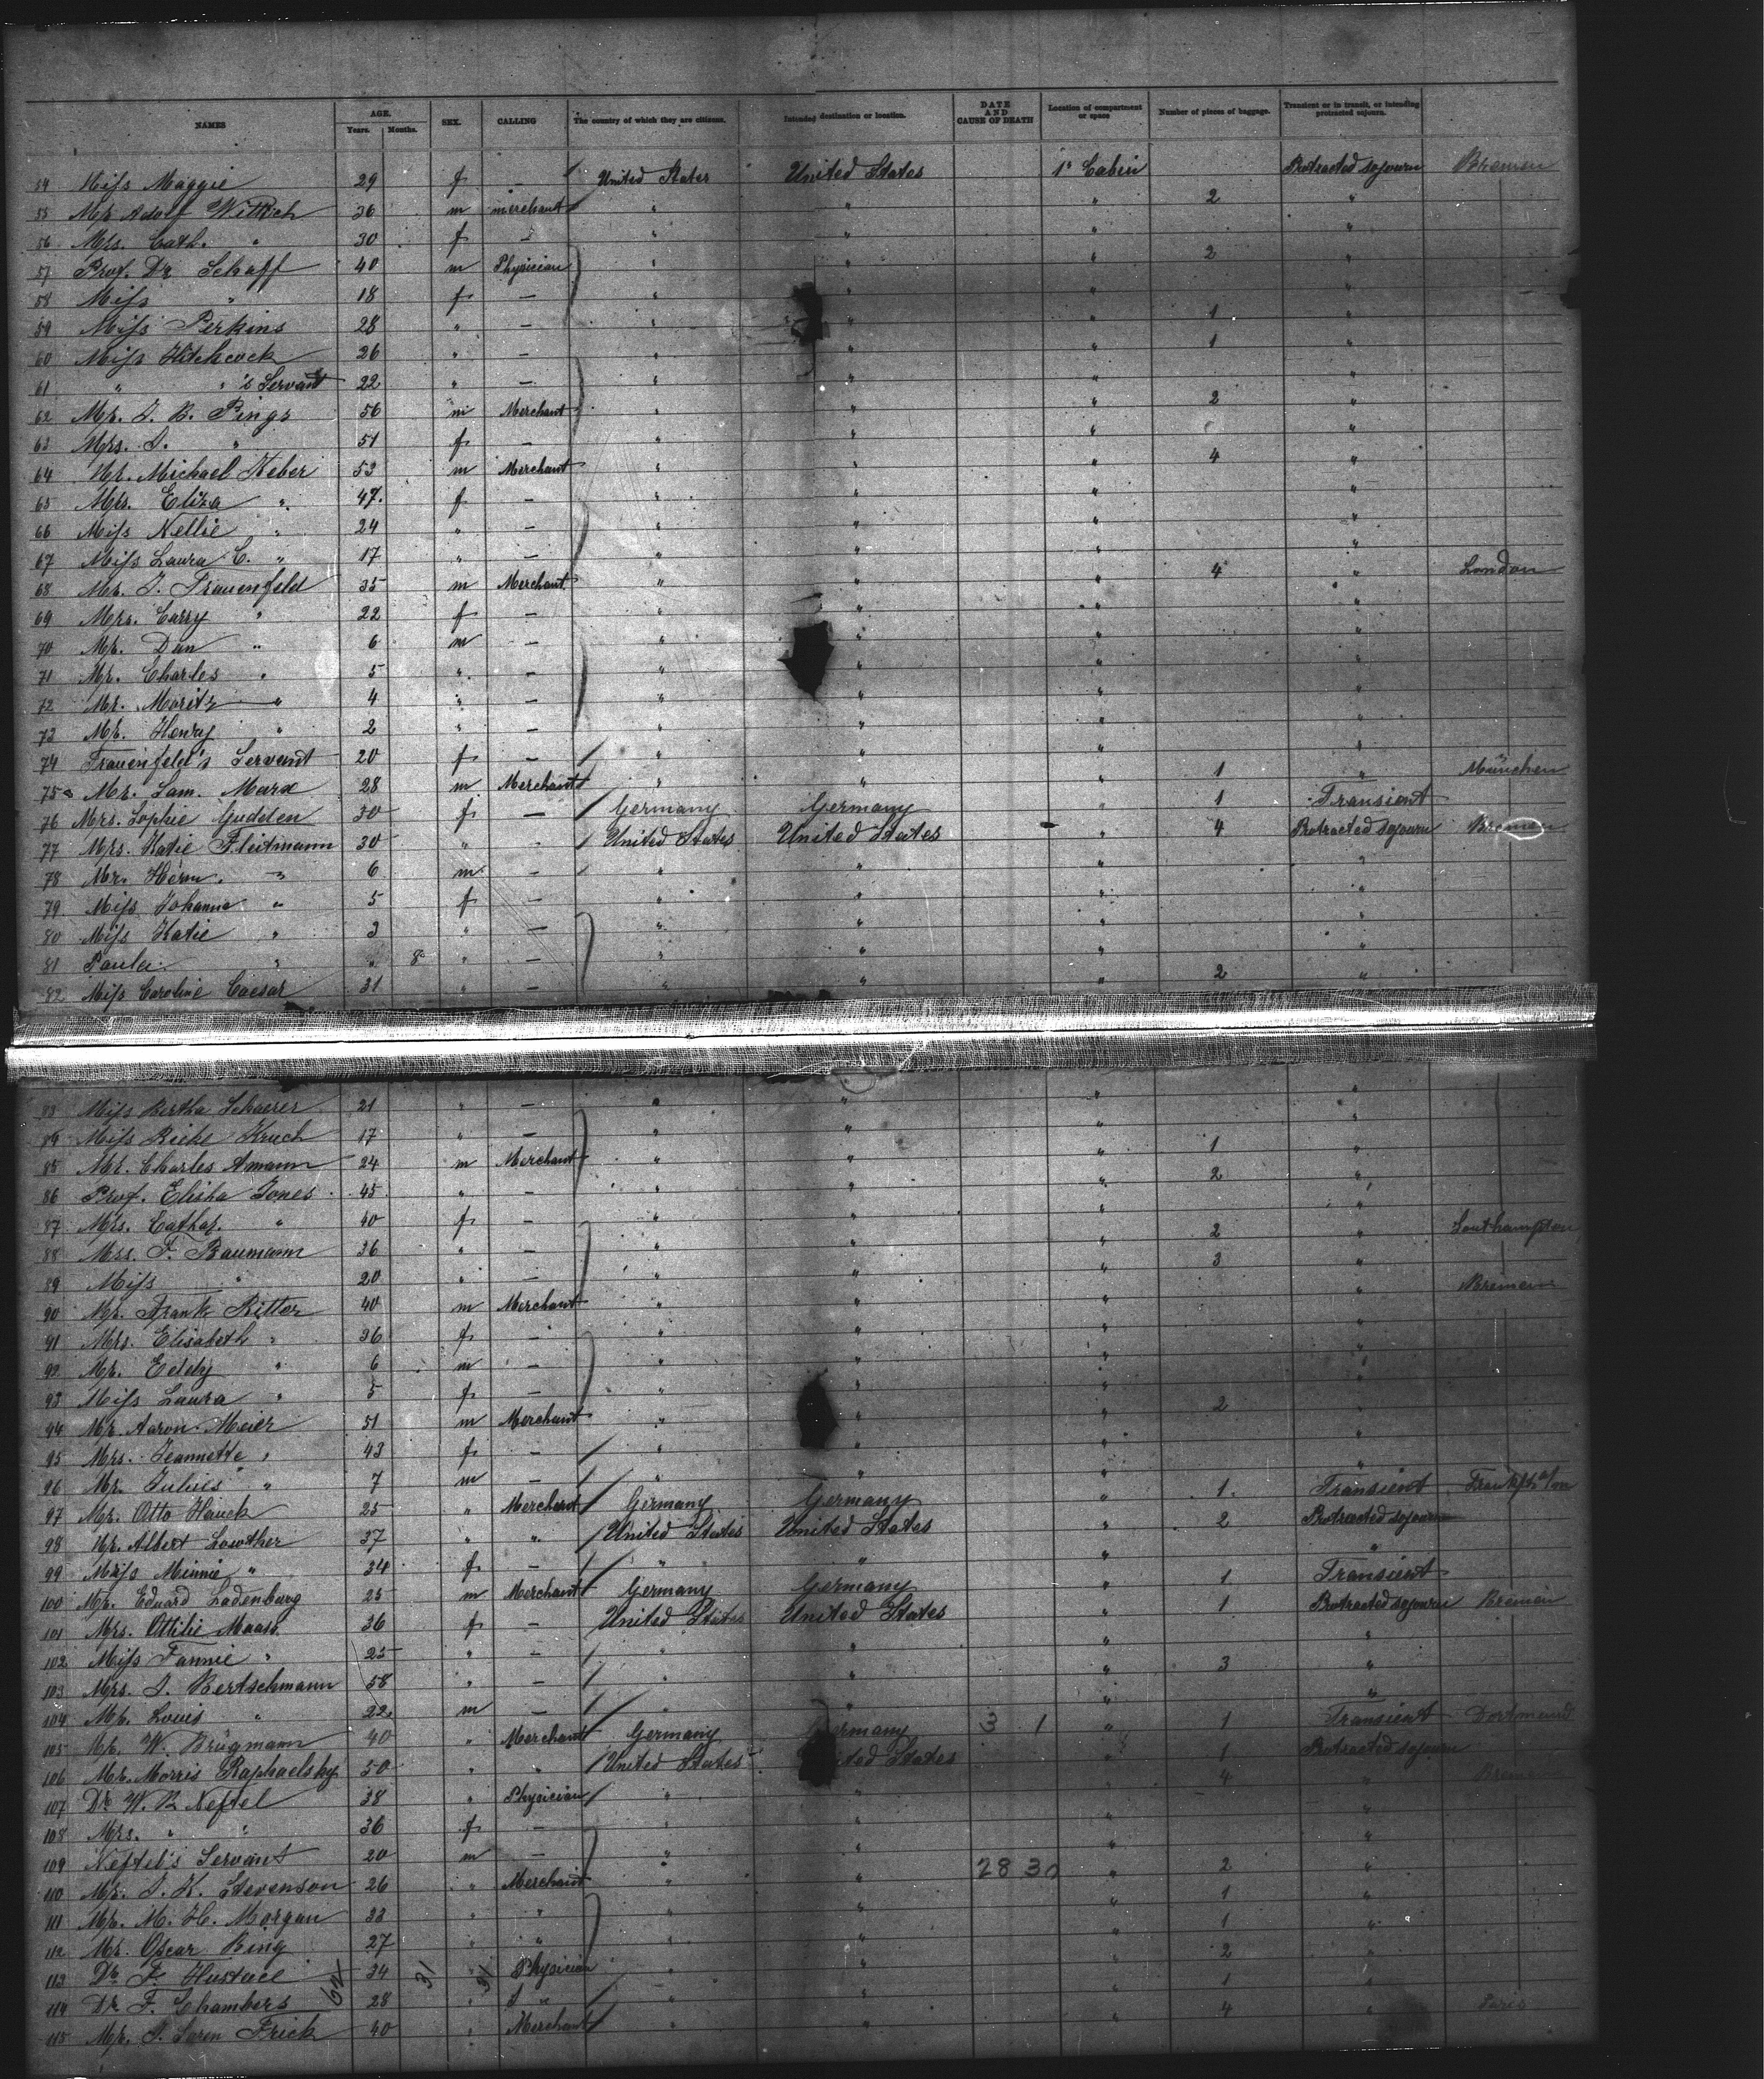 NAMES AGE. Years. Months. SEX. CALLING The country of which they are citizens. Intended destination or location. DATE AND CAUSE OF DEATH Location of compartment or space Number of pieces of baggage. Transient or in transit, or intending protracted sojourn.
54 Miss Maggie 29 f — United States United States 1r Cabin Protracted sojourn Bremen
55 Mr. Adolf Wittich 36 m merchant " " " 2 "
56 Mrs. Cath. " 30 f — " " " "
57 Prof. Dr Schaff 40 m Physician " " " 2 "
58 Miss " 18 f — " " " "
59 Miss Perkins 28 " — " " " 1 "
60 Miss Hitchcock 26 " — " " " 1 "
61 " " 's Servant 22 " — " " " "
62 Mr. J. B. Pings 56 m Merchant " " " 2 "
63 Mrs. J. " 51 f — " " " "
64 Mr. Michael Keber 53 m Merchant " " " 4 "
65 Mrs. Eliza " 47. f — " " " "
66 Miss Nellie " 24 " — " " " "
67 Miss Laura C. " 17 " — " " " "
68 Mr. J. Frauenfeld 35 m Merchant " " " 4 " London
69 Mrs. Carry " 22 f — " " " "
70 Mr. Dan " 6 m — " " " "
71 Mr. Charles " 5 " — " " " "
72 Mr. Moritz " 4 " — " " " "
73 Mr. Henry " 2 " — " " "
74 Frauenfeld's Servant 20 f — " " " "
75 Mr. Sam. Marx 28 m Merchant " " " 1 " München
76 Mrs. Sophie Gudden 30 f — Germany Germany " 1 Transient
77 Mrs. Katie Fleitmann 30 " — United States United States " 4 Protracted sojourn Bremen
78 Mr. Herm. " 6 m — " " " "
79 Miss Johanna " 5 f — " " " "
80 Miss Katie " 3 " — " " " "
81 Paula " " 8 " — " " " "
82 Miss Caroline Caesar 31 " — " " " 2 "
83 Miss Bertha Schaerer 21 " — " " " "
84 Miss Rieke Kruch 17 " — " " " "
85 Mr. Charles Amann 24 m Merchant " " " 1 "
86 Prof. Elisha Jones 45 " — " " " 2 "
87 Mrs. Cathar. " 40 f — " " " "
88 Mrs. F. Baumann 36 " — " " " 2 " Southampton
89 Miss " 20 " — " " " 3 "
90 Mr. Frank Ritter 40 m Merchant " " " " Bremen
91 Mrs. Elisabeth " 36 f — " " " "
92 Mr. Eddy " 6 m — " " " "
93 Miss Laura " 5 f — " " " "
94 Mr. Aaron Meier 51 m Merchant " " " 2 "
95 Mrs. Jeannette " 43 f — " " " "
96 Mr. Julius " 7 m — " " " "
97 Mr. Otto Hauck 25 " Merchant Germany Germany " 1. Transient Frankfth a/m
98 Mr. Albert Lowther 37 " " United States United States " 2 Protracted sojourn
99 Miss Minnie " 34 f — " " " "
100 Mr. Eduard Ladenburg 25 m Merchant Germany Germany " 1 Transient
101 Mrs. Ottilie Maass 36 f — United States United States " 1 Protracted sojourn Bremen
102 Miss Fannie " 25 " — " " " "
103 Mrs. J. Bertschmann 58 " — " " " 3 "
104 Mr. Louis " 22 m — " " " "
105 Mr. W. Brügmann 40 " Merchant Germany Germany 3 1 " 1 Transient Dortmund
106 Mr. Morris Raphaelsky 50 " " United States United States " 1 Protracted sojourn
107 Dr W. B. Neftel 38 " Physician " " " 4 " Bremen
108 Mrs. " " 36 f — " " " "
109 Neftel's Servant 20 m — " " " "
110 Mr. J. K. Stevenson 26 " Merchant " " 28 30 " 2 "
111 Mr. M. H. Morgan 33 " " " " " 1 "
112 Mr. Oscar Bing 27 " " " " " 1 "
113 Dr. F. 34 31 31 " Physician " " " 2 "
114 Dr. F. Chambers 28 " " " " " 1 "
115 Mr. J. Frick 40 " Merchant " " " 4 " Paris